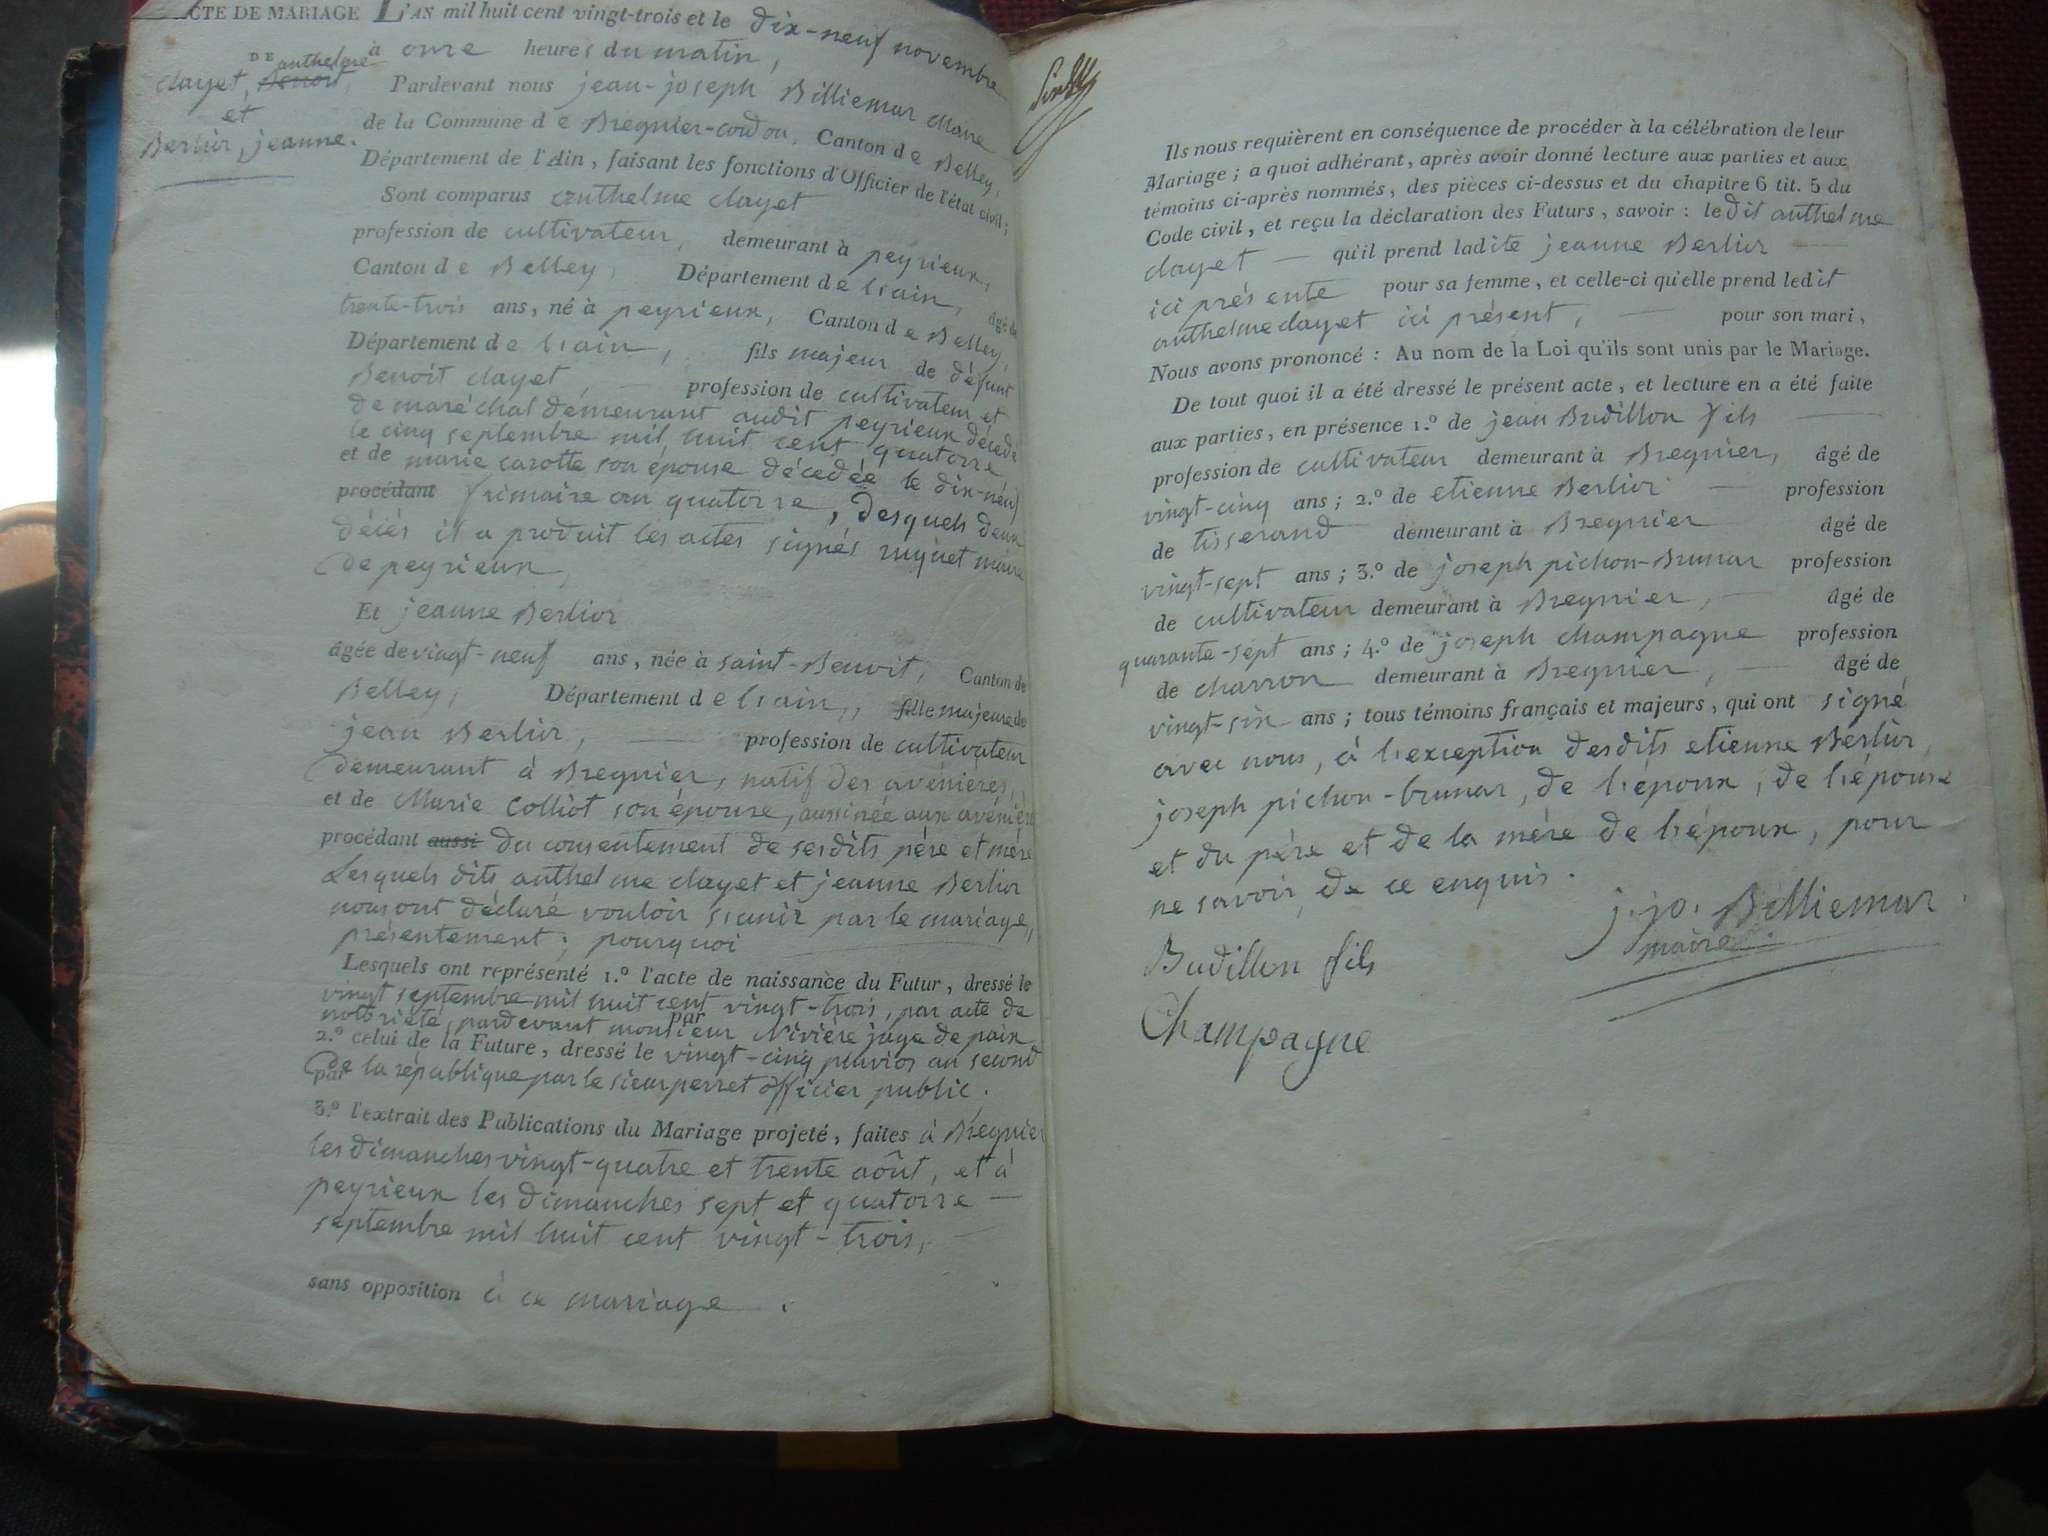 ACTE DE MARIAGE L'AN mil huit cent vingt-trois et le dix-neuf novembre
à onze heures du matin,
DE
anthelme
clayet, Benoit,
et
Berlior, jeanne.
Pardevant nous jean-joseph Billiemar Maire
de la Commune de Bregnier-cordon, Canton de Belley,
Département de l'Ain, faisant les fonctions d'Officier de l'état civil;
Sont comparus anthelme clayet
profession de cultivateur, demeurant à peyrieux,
Canton de Belley, Département de l'ain, âgé de
trente-trois ans, né à peyrieux, Canton de Belley,
Département de l'ain, fils majeur de défunt
Benoit clayet, profession de cultivateur et
de maréchal demeurant audit peyrieux décédé
le cinq septembre mil huit cent quatorze
et de marie carotte son épouse décédée le dix-neuf
procédant frimaire an quatorze, desquels deux
décès il a produit les actes signés maire
de peyrieux,
Et jeanne Berlior
âgée de vingt-neuf ans, née à saint-Benoit, Canton de
Belley, Département de l'ain, fille majeure de
jean Berlior, profession de cultivateur
demeurant à Bregnier, natif des avenières,
et de Marie Colliot son épouse, aussi née aux avénières
procédant aussi du consentement de sesdits père et mère
Lesquels dits anthelme clayet et jeanne Berlior
nous ont déclaré vouloir s'unir par le mariage,
présentement; pourquoi
Lesquels ont représenté 1.° l'acte de naissance du Futur, dressé le
vingt septembre mil huit cent vingt-trois, par acte de
notoriété, pardevant monsieur par Rivière juge de paix
2.° celui de la Future, dressé le vingt-cinq pluvios an second
de la république par le sieur perret officier public.
par
3.° l'extrait des Publications du Mariage projeté, faites à Bregnier
les dimanches vingt-quatre et trente août, et à
peyrieux les dimanches sept et quatorze
septembre mil huit cent vingt-trois,
sans opposition à ce mariage.
Ils nous requièrent en conséquence de procéder à la célébration de leur
Mariage; à quoi adhérant, après avoir donné lecture aux parties et aux
témoins ci-après nommés, des pièces ci-dessus et du chapitre 6 tit. 5 du
Code civil, et reçu la déclaration des Futurs, savoir: ledit anthelme
clayet qu'il prend ladite jeanne Berlior
ici présente pour sa femme, et celle-ci qu'elle prend ledit
anthelme clayet ici présent, pour son mari,
Nous avons prononcé: Au nom de la Loi qu'ils sont unis par le Mariage.
De tout quoi il a été dressé le présent acte, et lecture en a été faite
aux parties, en présence 1.° de jean Budillon fils
profession de cultivateur demeurant à Bregnier, âgé de
vingt-cinq ans; 2.° de etienne Berlior profession
de tisserand demeurant à Bregnier âgé de
vingt-sept ans; 3.° de joseph pichon-Brunar profession
de cultivateur demeurant à Bregnier, âgé de
quarante-sept ans; 4.° de joseph champagne profession
de charron demeurant à Bregnier, âgé de
vingt-six ans; tous témoins français et majeurs, qui ont signé
avec nous, à l'exception desdits etienne Berlior,
joseph pichon-brunar, de l'époux, de l'épouse
et du père et de la mère de l'époux, pour
ne savoir, de ce enquis.
j. jo. Billiemar
maire.
Budillon fils
Champagne